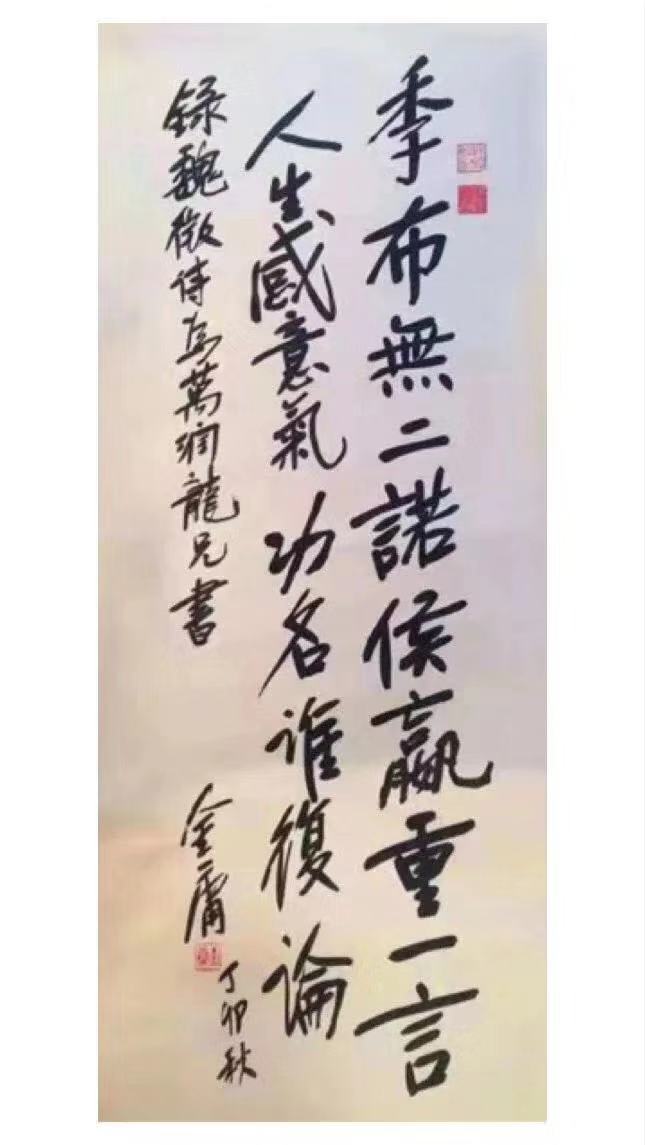 季布無二諾侯嬴重一言
人生感意氣功名誰復論
錄魏徵詩為萬潤龍兄書
金庸
丁卯秋